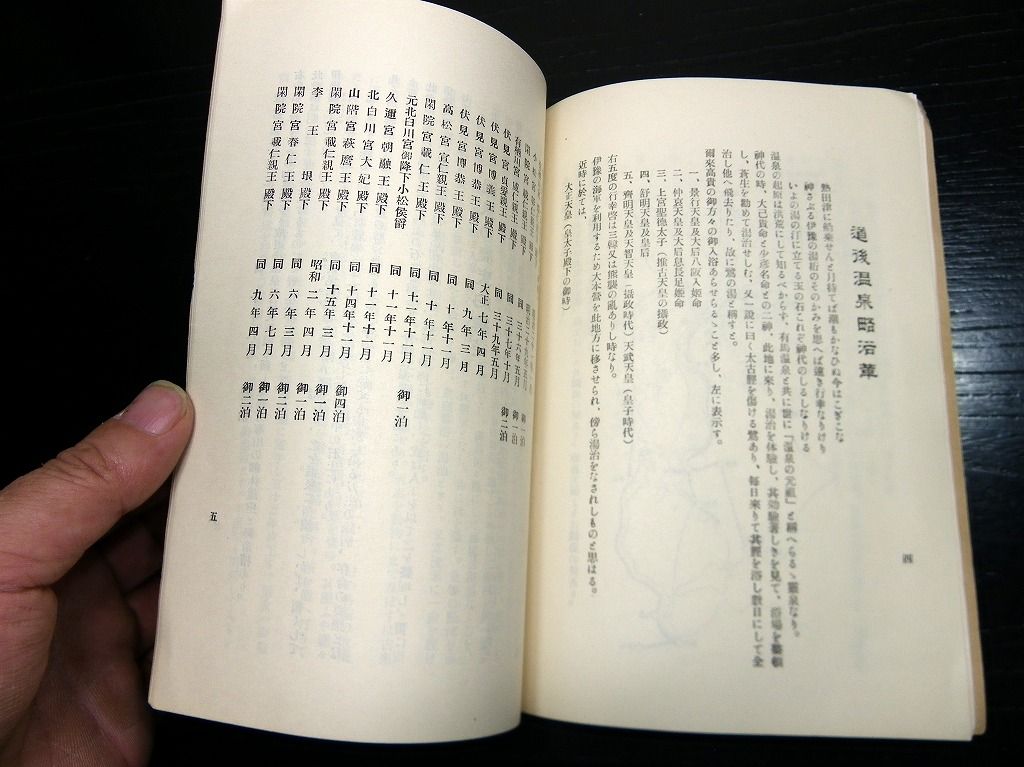 道後温泉略沿革
熟田津に船乗せんと月待てば潮もかなひぬ今はこぎこな
神さぶる伊豫の湯桁のそのかみを思へば遠き行幸なりけり
いよの湯の汀に立てる玉の石これぞ神代のしるしなりける
温泉の起原は洪荒にして知るべからず、有馬温泉と共に世に『温泉の元祖』と稱へらるゝ靈泉なり。
神代の時、大己貴命と少彦名命との二神、此地に來り、湯治を体驗し、其効驗著しきを見て、浴場を
し、蒼生を勧めて湯治せしむ、又一說に曰く太古脛を傷ける鷺あり、毎日來りて其脛を浴し數日にして全
治し他へ飛去りたり、故に鷺の湯と稱すと。
爾來高貴の御方々の御入浴あらせらるゝこと多し、左に表示す。
一、景行天皇及大后八阪入姬命
二、仲哀天皇及大后息長足姬命
三、上宮聖德太子（推古天皇の攝政）
四、舒明天皇及皇后
五、齊明天皇及天智天皇（攝政時代）天武天皇（皇子時代）
右五度の行幸啓は三韓又は熊襲の亂ありし時なり。
伊豫の海軍を利用するため大本營を此地方に移させられ、傍ら湯治をなされしものと思はる。
近時に於ては、
大正天皇（皇太子殿下の御時）
四
伏見宮貞愛親王殿下 同 三十七年十月 御一泊
伏見宮博義王殿下 同 三十九年五月 御二泊
伏見宮博恭王殿下 大正七年四月
高松宮宣仁親王殿下 同 九年三月
閑院宮載仁王殿下 同 十年十月
元北白川宮御降下小松侯爵 同 十年十一月
久邇宮朝融王殿下 同 十一年十一月 御一泊
北白川宮大妃殿下 同 十二年十一月
山階宮萩麿王殿下 同 十四年十一月
閑院宮載仁親王殿下 同 十五年十一月 御四泊
李王垠殿下 昭和二年四月 御一泊
閑院宮春仁王殿下 同 六年三月 御一泊
閑院宮載仁親王殿下 同 六年七月 御一泊
同 九年四月 御二泊
五